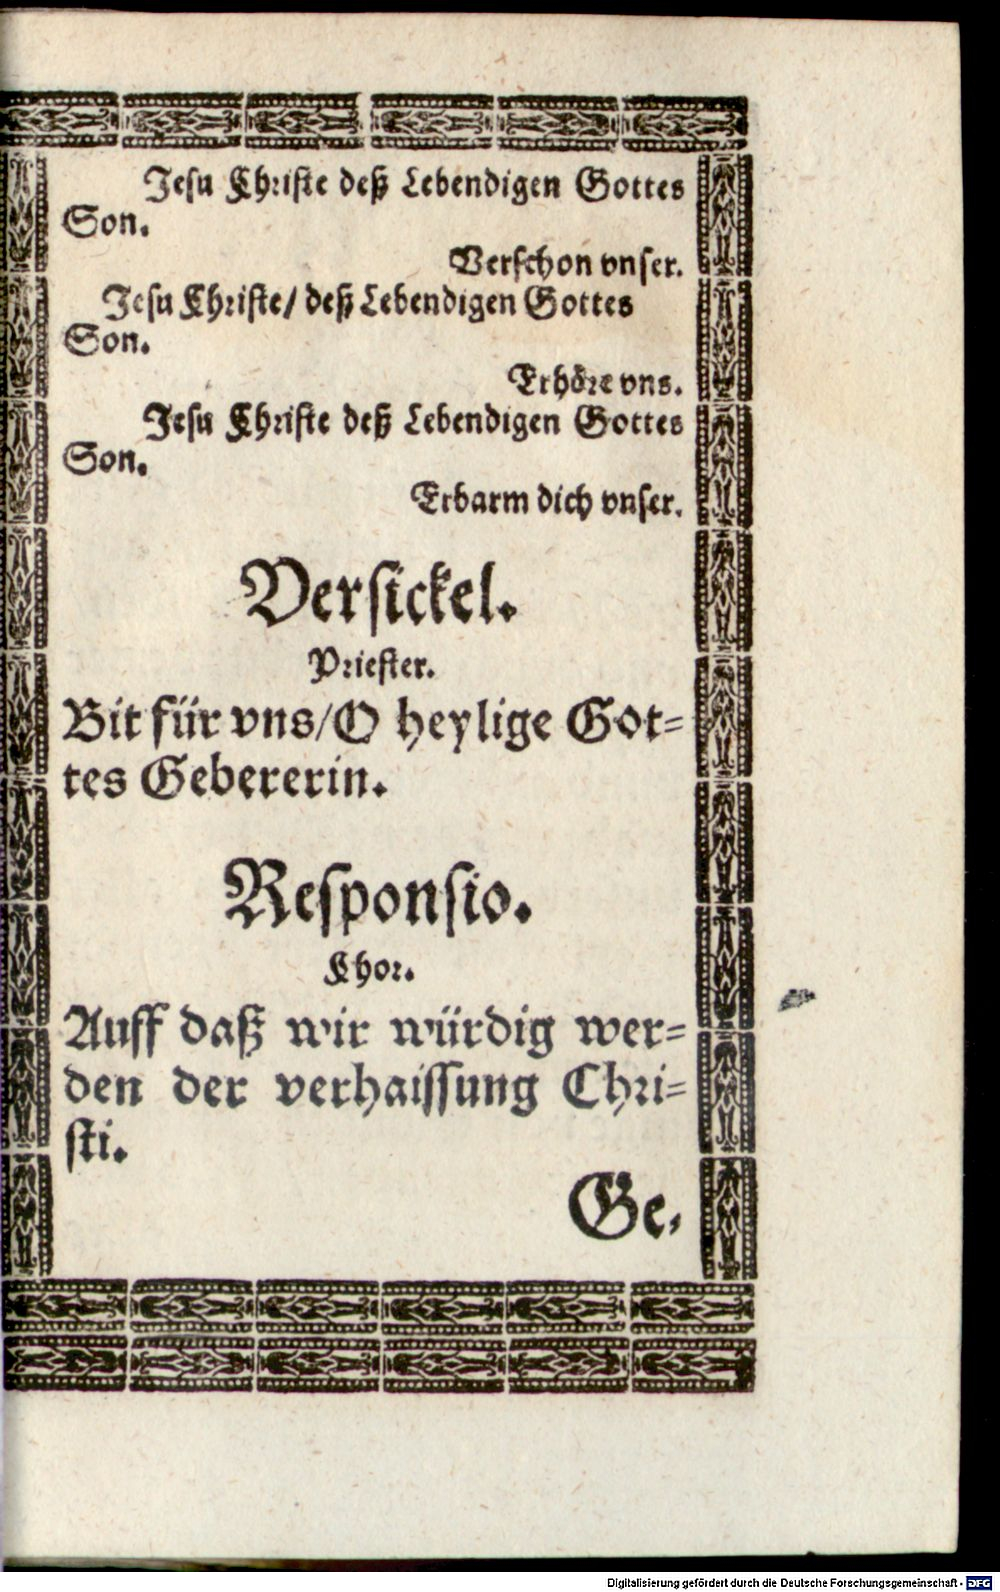 Jesu Christe deß Lebendigen Gottes
Son.
Verschon vnser.
Jesu Christe/ deß Lebendigen Gottes
Son.
Erhöre vns.
Jesu Christe deß Lebendigen Gottes
Son.
Erbarm dich vnser.
Versickel.
Priester.
Bit für vns/O heylige Got=
tes Gebererin.
Responsio.
Chor.
Auff daß wir würdig wer=
den der verhaissung Chri=
sti.
Ge,
Digitalisierung gefördert durch die Deutsche Forschungsgemeinschaft - DFG